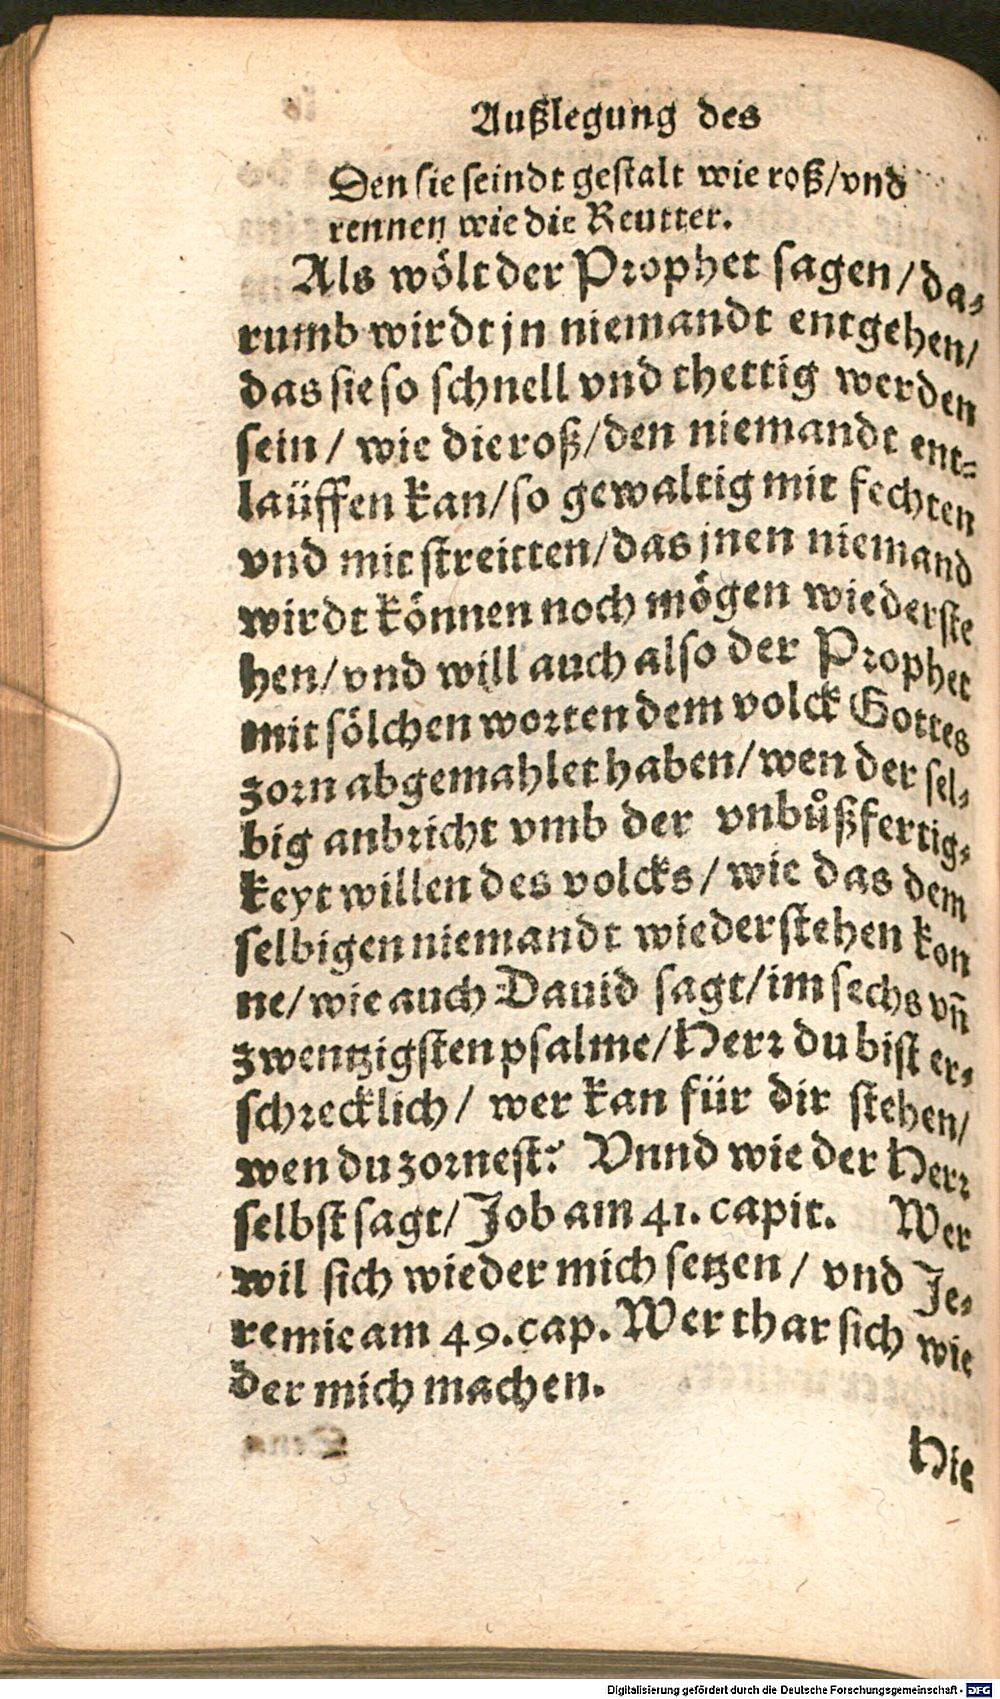 Außlegung des
Den sie seindt gestalt wie roß/vnd
rennen wie die Reutter.
Als wölt der Prophet sagen/da-
rumb wirdt jn niemandt entgehen/
das sie so schnell vnd thettig werden
sein/ wie die roß/den niemandt ent-
laüffen kan/so gewaltig mit fechten
vnd mit streitten/das jnen niemand
wirdt können noch mögen wiederste
hen/vnd will auch also der Prophet
mit sölchen worten dem volck Gottes
zorn abgemahlet haben/wen der sel-
big anbricht vmb der vnbůßfertig-
keyt willen des volcks/wie das dem
selbigen niemandt wiederstehen kon
ne/wie auch Dauid sagt/im sechs vn̄
zwentzigsten psalme/Herr du bist er-
schrecklich/ wer kan für dir stehen/
wen du zornest? Vnnd wie der Herr
selbst sagt/Job am 41. capit. Wer
wil sich wieder mich setzen/ vnd Je-
remie am 49.cap. Wer thar sich wie
der mich machen.
Hie
Digitalisierung gefördert durch die Deutsche Forschungsgemeinschaft - DFG